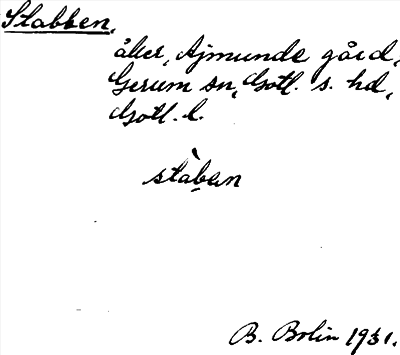 Stabben,
åker, Ajmunde gård,
Gerum sn, Gotl. s. hd,
Gotl. l.
stàbe̮n
B. Bolin 1931.